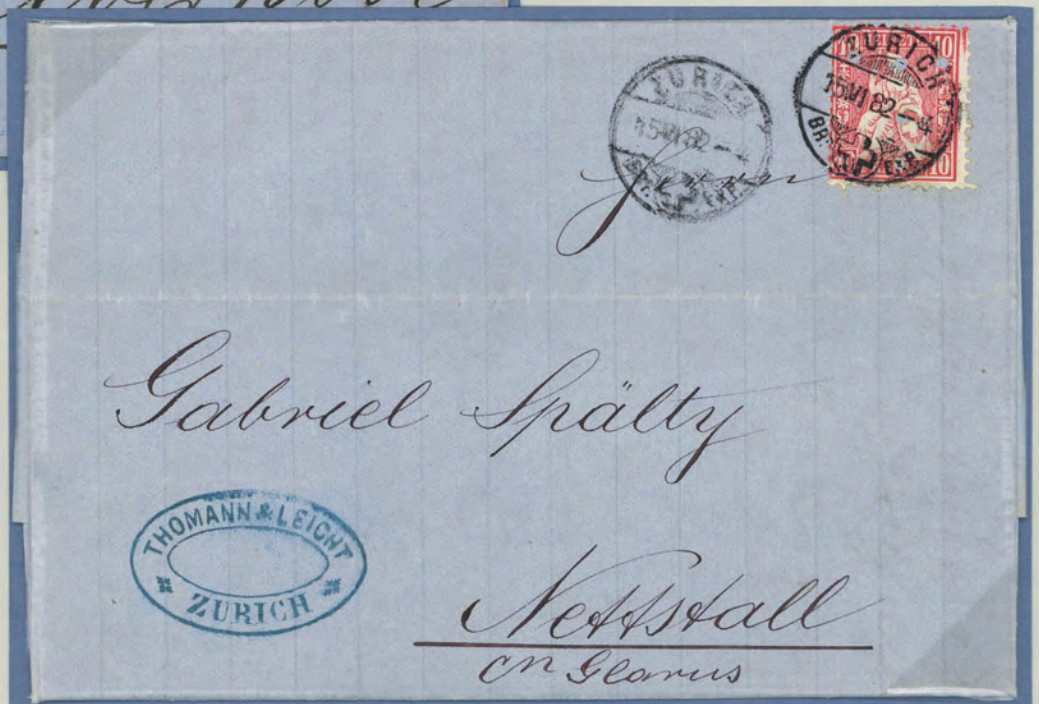 ZÜRICH
15.VI.82–4
BRF. EXP.
ZÜRICH
15.VI.82–4
BRF. EXP.
10 10
10
Herrn
Gabriel Spälty
THOMANN & LEICHT
ZURICH
Nettstall
Ct Glarus